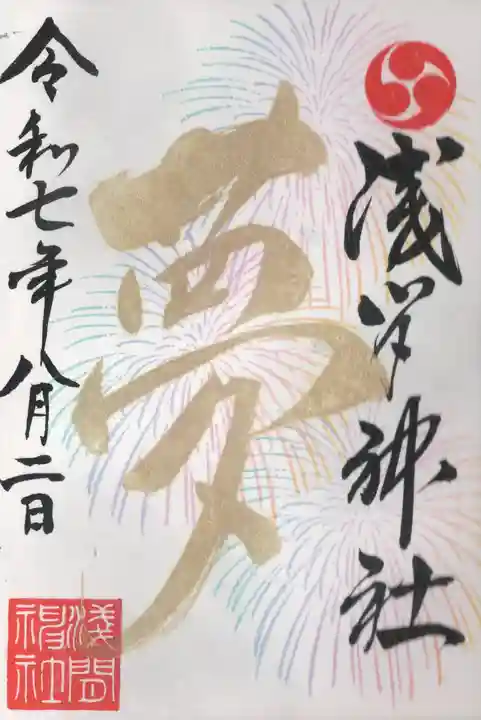 浅間神社
夢
令和七年八月二日
浅間
神社